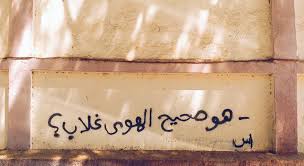 - هو صحيح الهوى غلاب؟
اس